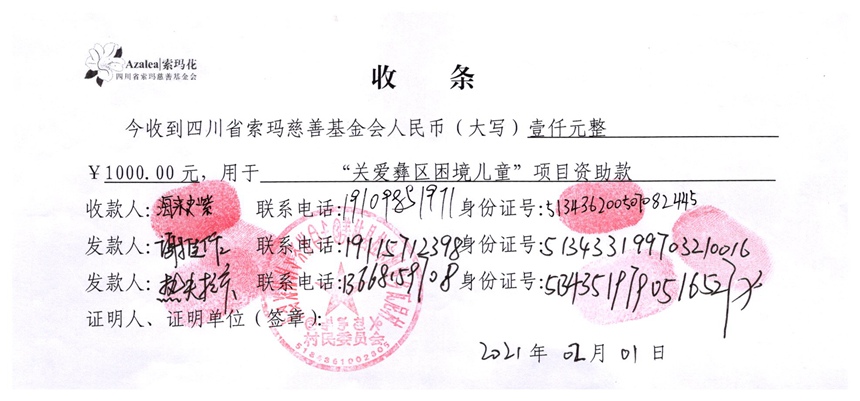 Azalea|索玛花
四川省索玛慈善基金会
收 条
今收到四川省索玛慈善基金会人民币（大写）壹仟元整
￥1000.00 元，用于 “关爱彝区困境儿童”项目资助款
收款人: 联系电话:19109851971 身份证号:513436200507082445
发款人: 联系电话:19115712398 身份证号:513433199703210016
发款人: 联系电话:13668159708 身份证号:
证明人、证明单位（签章）:
村民委员会
2021 年 02 月 01 日